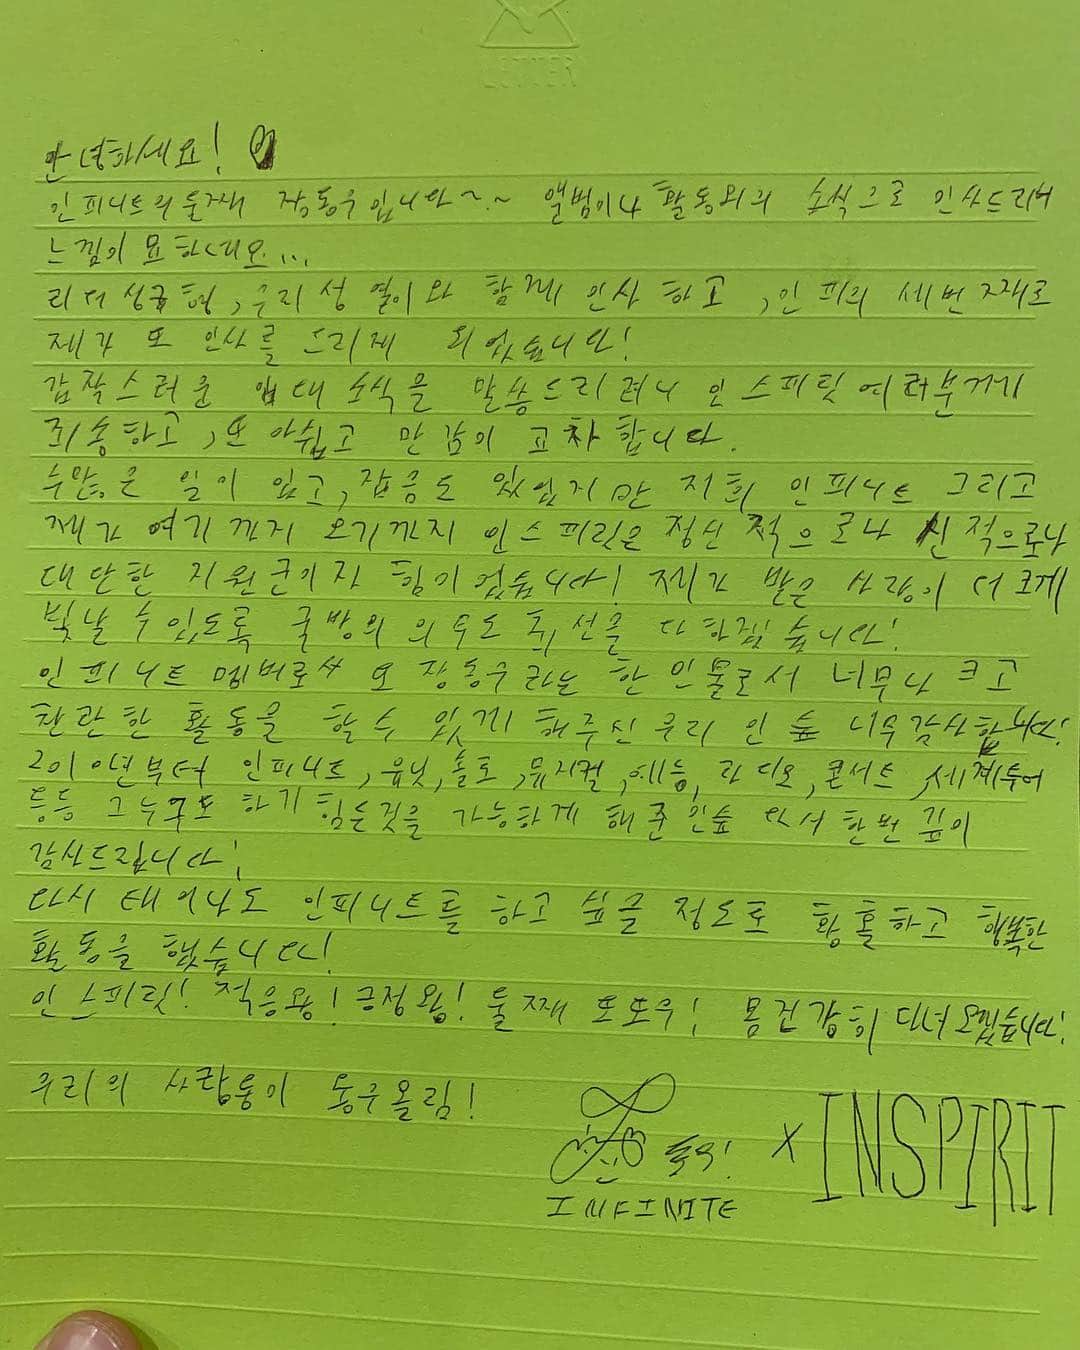 LETTER
안녕하세요!
인피니트의 둘째 장동우입니다~~ 앨범이나 활동외의 소식으로 인사드리니
느낌이 묘하네요...
리더 성규형, 우리 성열이와 함께 인사 하고, 인피의 세번째로
제가 또 인사를 드리게 되었습니다!
갑작스러운 입대 소식을 말씀드리려니 인스피릿 여러분께
죄송하고, 또 아쉽고 만감이 교차합니다.
수많은 일이 있고, 잡음도 있었지만 저희 인피니트 그리고
제가 여기까지 오기까지 인스피릿은 정신적으로나 신적으로나
대단한 지원군이자 힘이었습니다! 제가 받은 사랑이 더 크게
빛날 수 있도록 국방의 의무도 최선을 다하겠습니다!
인피니트 멤버로서 또 장동우라는 한 인물로서 너무나 크고
찬란한 활동을 할 수 있게 해주신 우리 인숲 너무감사합니다!
2010년부터 인피니트, 유닛, 솔로, 뮤지컬, 예능, 라디오, 콘서트, 세계투어
등등 그누구도 하기 힘든것을 가능하게 해준 인숲 다시 한번 깊이
감사드립니다!
다시 태어나도 인피니트를 하고 싶을 정도로 황홀하고 행복한
활동을 했습니다!
인스피릿! 적응왕! 긍정왕! 둘째 또또우! 몸건강히 다녀오겠습니다!
우리의 사랑둥이 동우올림!
동우! x INSPIRIT
INFINITE